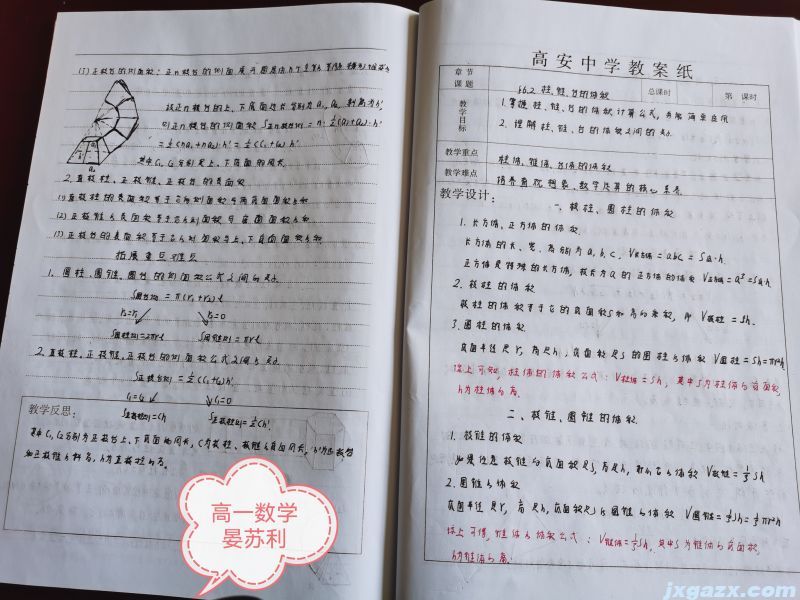 (3) 正棱台的侧面积：正n棱台的侧面展开图是由n个全等的等腰梯形组成的
设正n棱台的上、下底面边长分别为a₁, a₂, 斜高为h'
则正n棱台的侧面积 S正n棱台侧 = n·½(a₁+a₂)·h'
= ½(na₁+na₂)h' = ½(c₁+c₂)·h'
其中 c₁, c₂ 分别是上、下底面的周长
2. 直棱柱、正棱锥、正棱台的表面积
(1) 直棱柱的表面积等于它的侧面积与两底面面积的和
(2) 正棱锥的表面积等于它的侧面积与底面面积的和
(3) 正棱台的表面积等于它的侧面积与上、下底面面积的和
拓展重点难点
1. 圆柱、圆锥、圆台的侧面积公式之间的关系
S圆台侧 = π(r₁+r₂)l
r₁=r₂ r₁=0
S圆柱侧=2πrl S圆锥侧=πrl
2. 直棱柱、正棱锥、正棱台的侧面积公式之间的关系
S正棱台侧=½(c₁+c₂)h'
c₁=c₂ c₁=0
S直棱柱侧=ch S正棱锥侧=½ch'
教学反思：
其中 c₁, c₂分别为正棱台上、下底面的周长, c为棱柱、棱锥的底面周长, h'为正棱台
和正棱锥的斜高, h为直棱柱的高。
高一数学
晏苏利
高安中学教案纸
章节
课题
§6.2 柱、锥、台的体积
总课时
第 课时
教学目标
1. 掌握柱、锥、台的体积计算公式, 会解简单应用
2. 理解柱、锥、台的体积之间的关系
教学重点
柱体、锥体、台体的体积
教学难点
培养直观想象、数学运算的核心素养
教学设计：
一、棱柱、圆柱的体积
1. 长方体、正方体的体积
长方体的长、宽、高分别为a, b, c, V长方体=abc=S底·h
正方体是特殊的长方体, 棱长为a的正方体的体积 V正方体=a³=S底·h
2. 棱柱的体积
棱柱的体积等于它的底面积S和高h的乘积, 即 V棱柱=Sh.
3. 圆柱的体积
底面半径是r, 高是h, 底面积是S的圆柱的体积 V圆柱=Sh=πr²h
综上可知, 柱体的体积公式：V柱体=Sh, 其中S为柱体的底面积,
h为柱体的高.
二、棱锥、圆锥的体积
1. 棱锥的体积
如果任意棱锥的底面积是S, 高是h, 那么它的体积 V棱锥=⅓Sh
2. 圆锥的体积
底面半径是r, 高是h, 底面积是S的圆锥的体积 V圆锥=⅓Sh=⅓πr²h
综上可得, 锥体的体积公式：V锥体=⅓Sh. 其中S为锥体的底面积,
h为锥体的高.
jxgazx.com